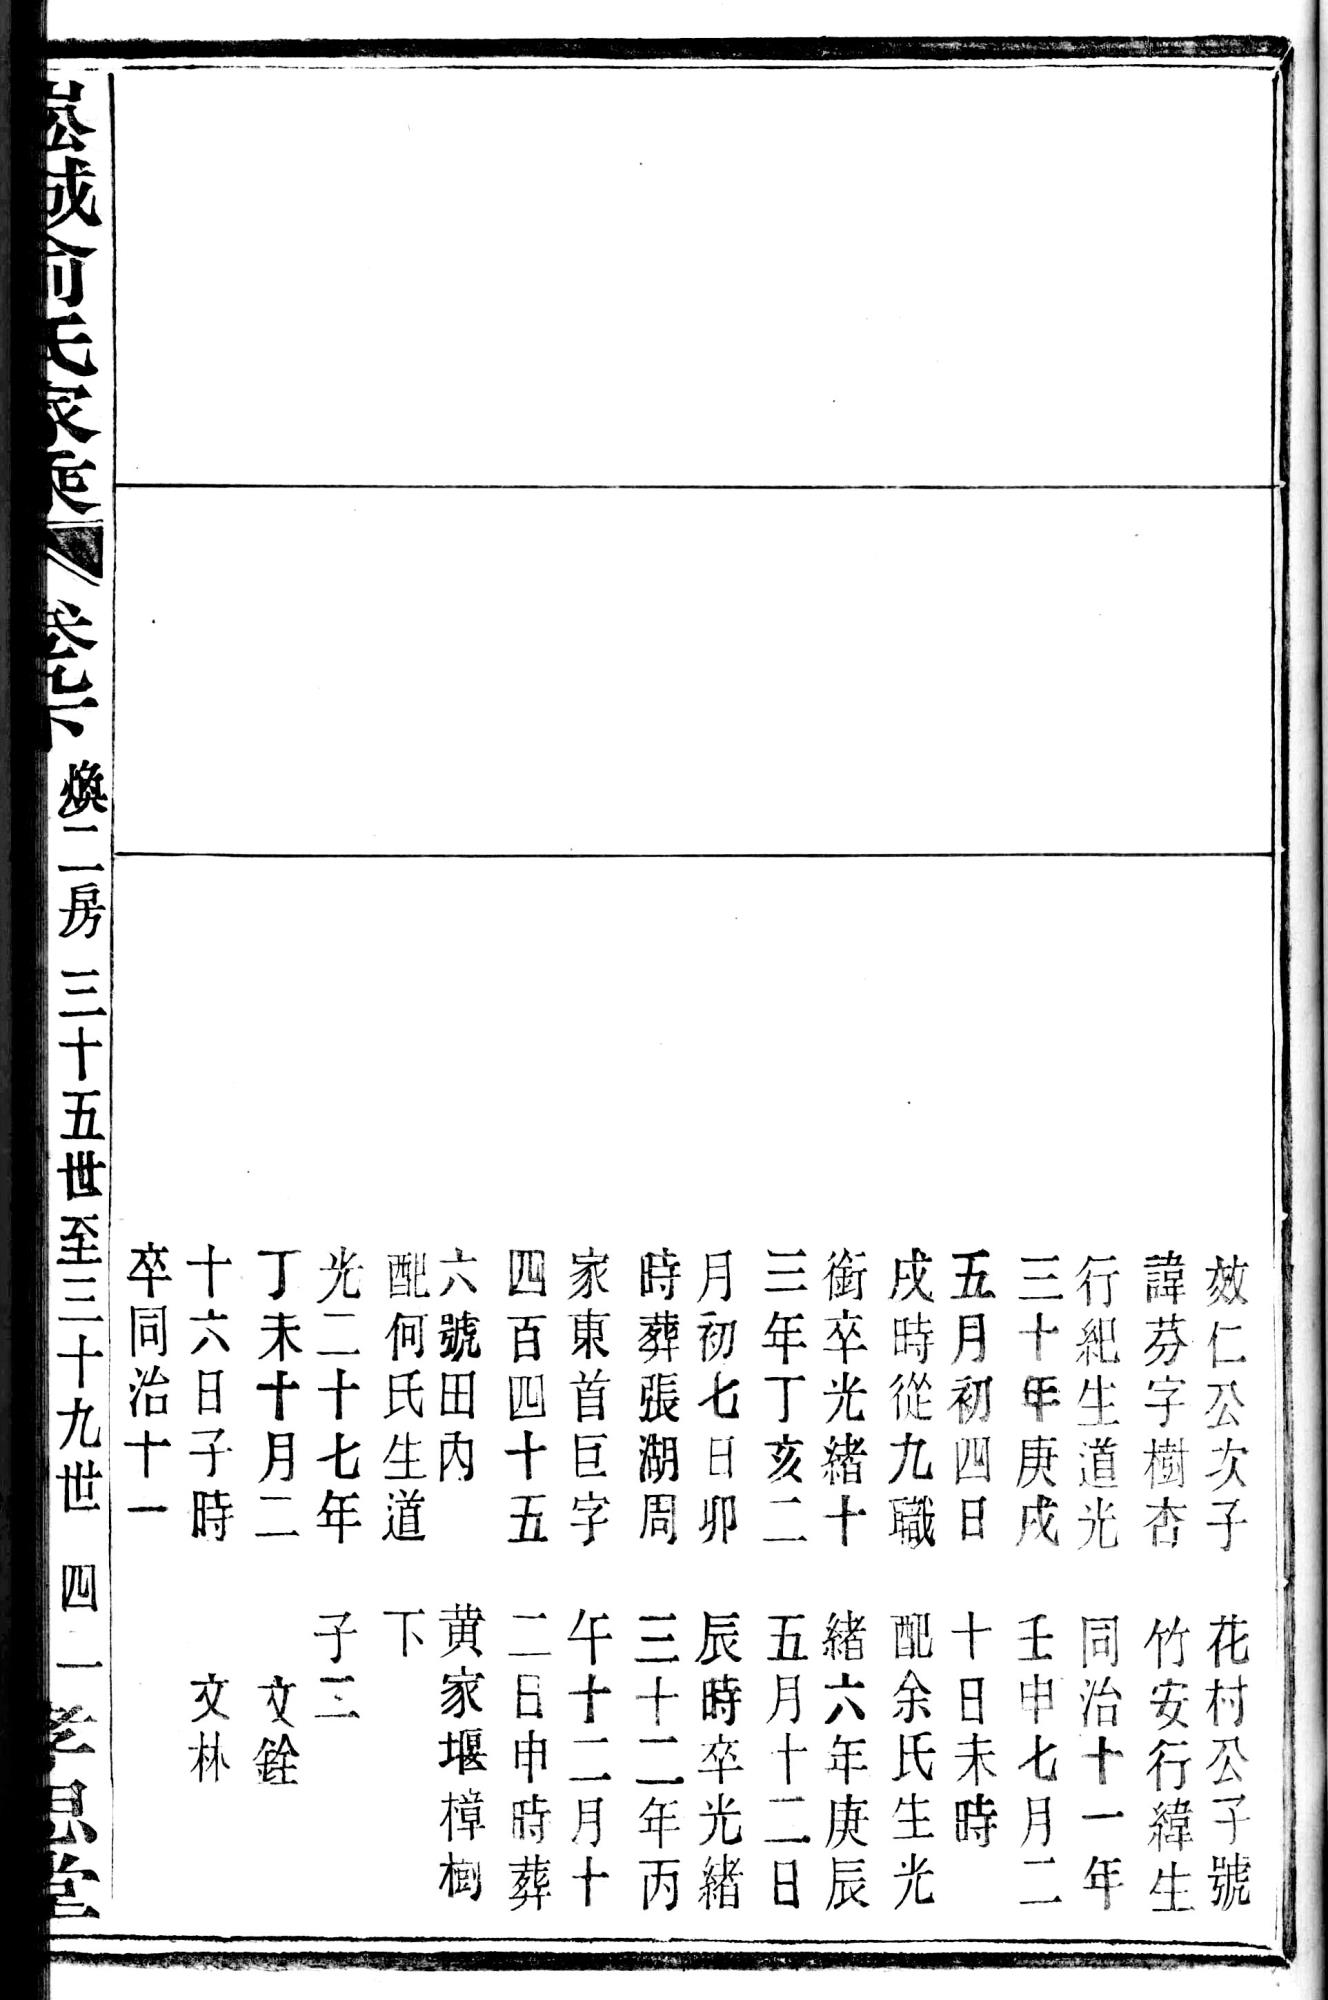 效仁公次子
諱芬字樹杏
行紀生道光
三十年庚戌
五月初四日
戌時從九職
銜卒光緒十
三年丁亥二
月初七日卯
時葬張湖周
家東首巨字
四百四十五
六號田內
配何氏生道
光二十七年
丁未十月二
十六日子時
卒同治十一
花村公子號
竹安行緯生
同治十一年
壬申七月二
十日未時
配余氏生光
緒六年庚辰
五月十二日
辰時卒光緒
三十二年丙
午十二月十
二日申時葬
黄家堰樟樹
下
子二
文銓
文林
崧城俞氏家乘
卷九下
煥二房 三十五世至三十九世 四一
孝思堂